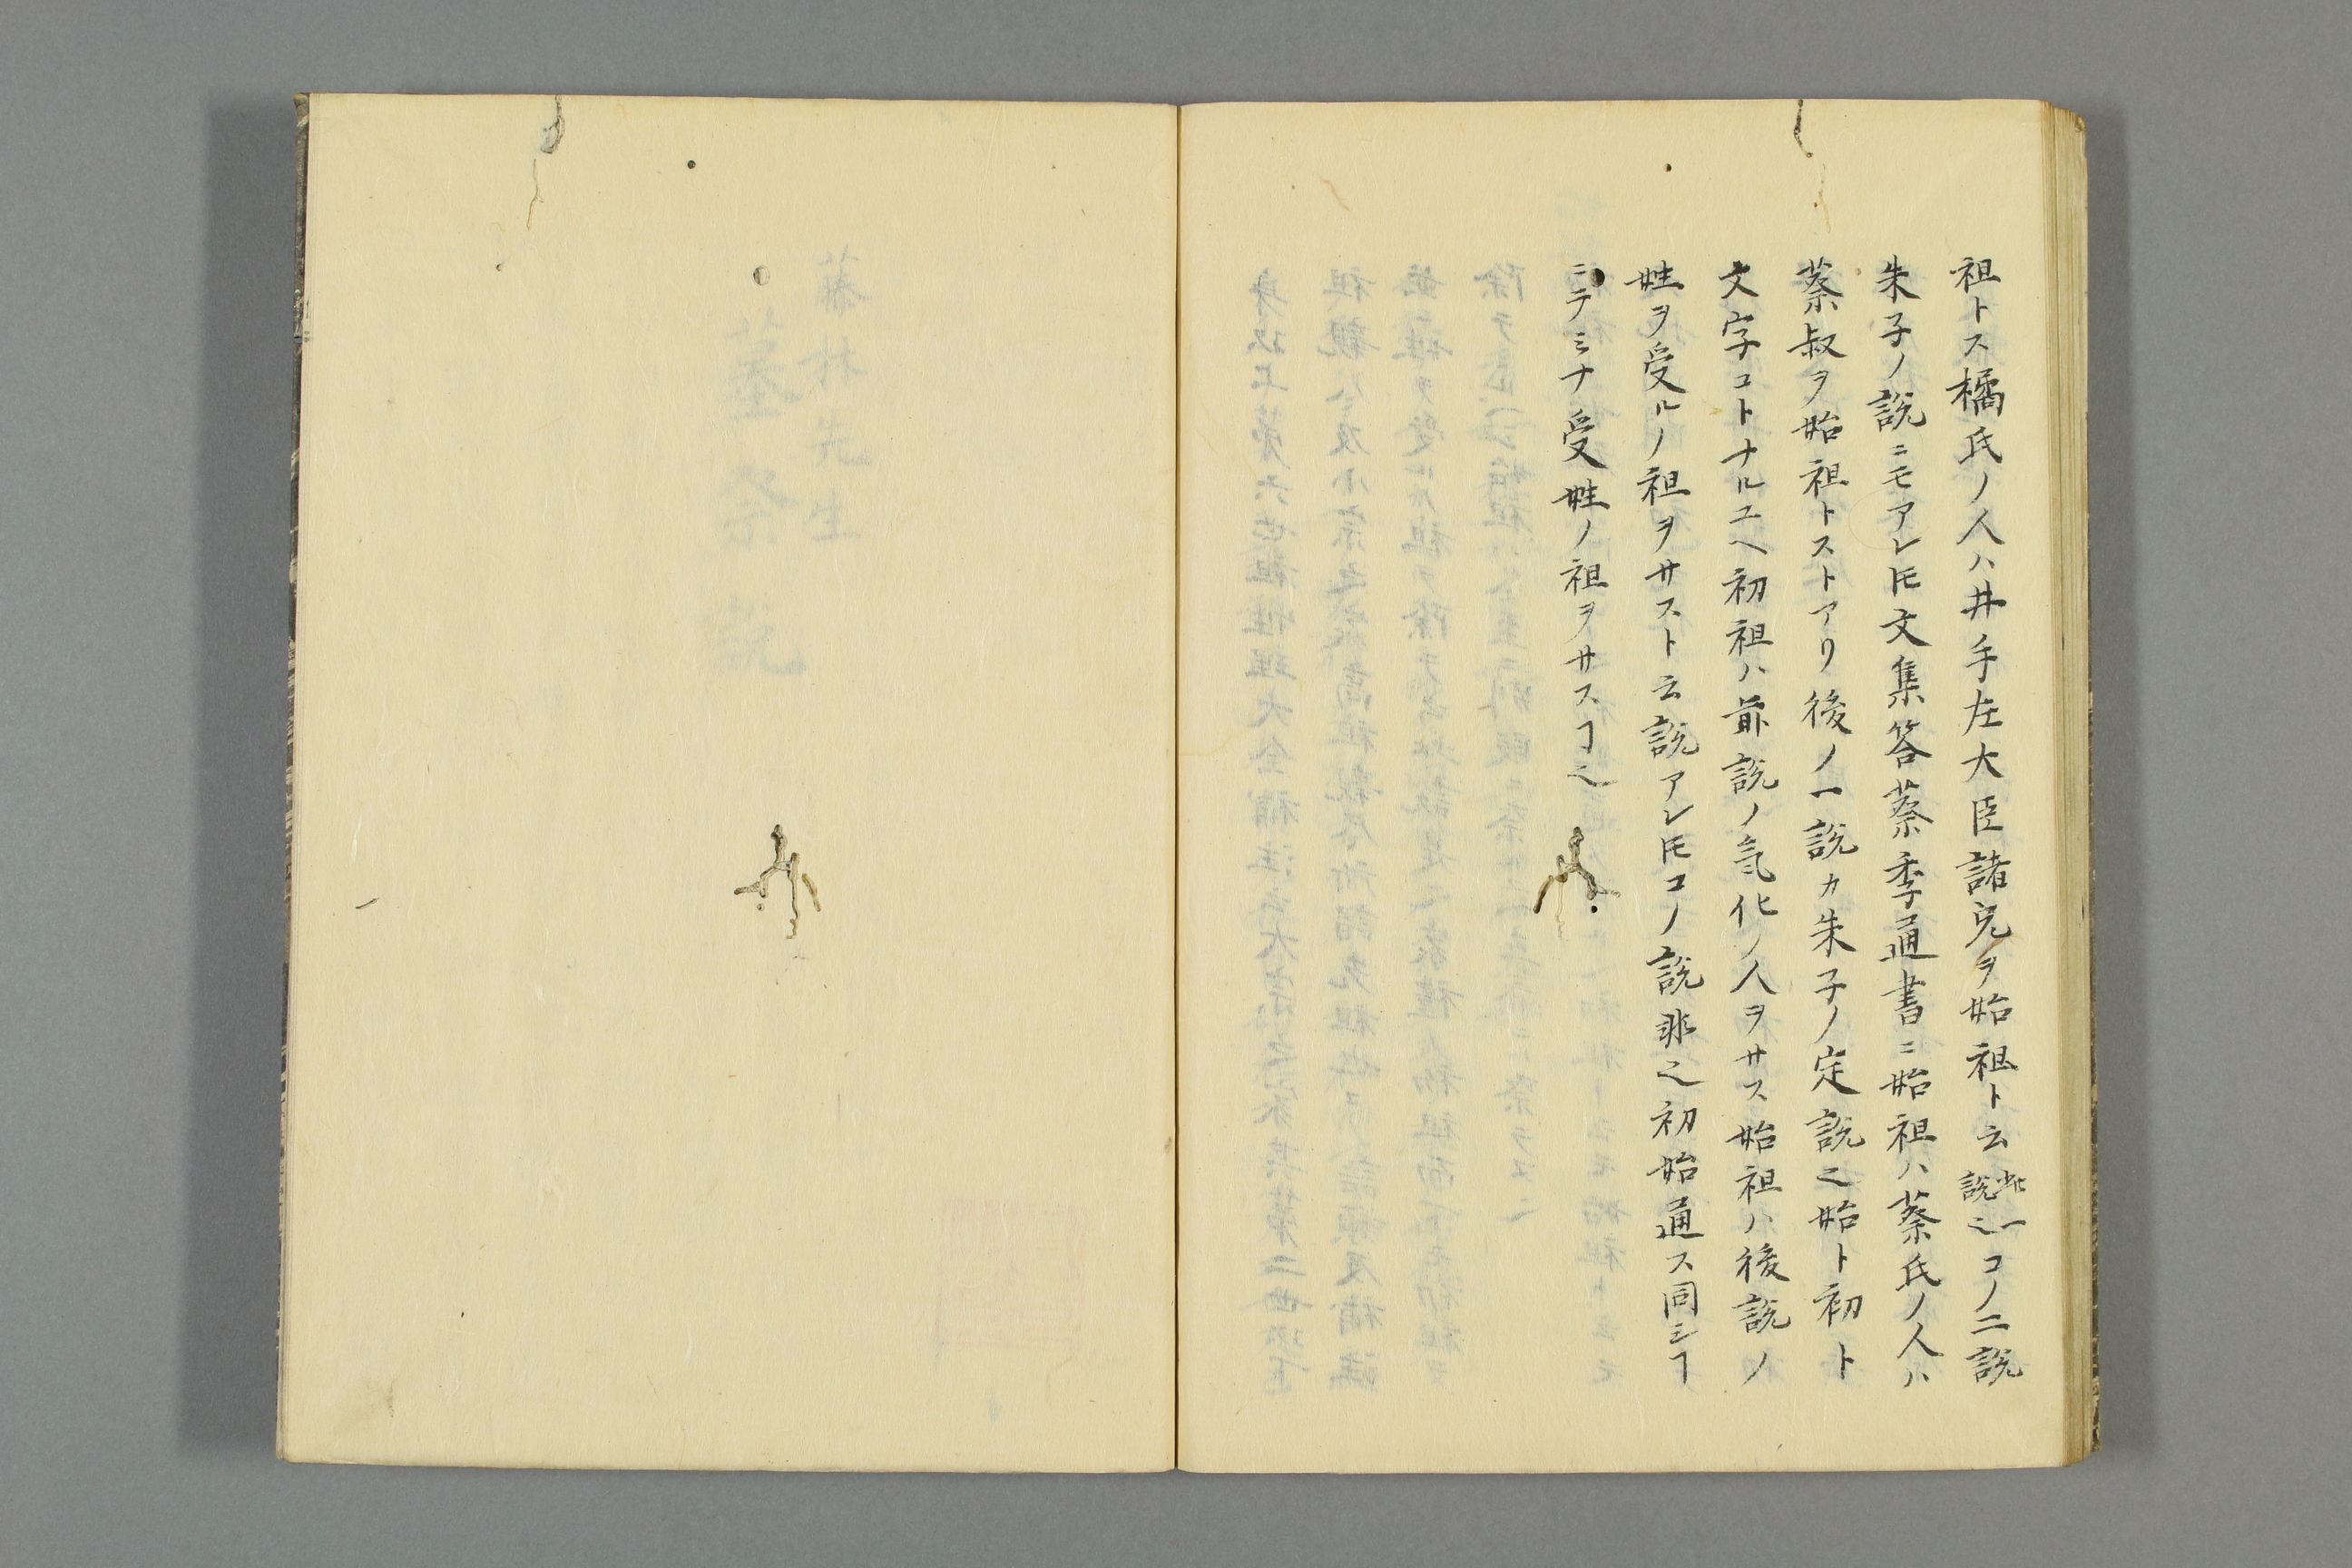 祖トス橘氏ノ人ハ井手左大臣諸兄ヲ始祖ト云此一説也コノ二説
朱子ノ説ニモアレ𪜈文集答蔡季通書ニ始祖ハ蔡氏ノ人ハ
蔡叔ヲ始祖トストアリ後ノ一説カ朱子ノ定説也始ト初ト
文字コトナルユヘ初祖ハ前説ノ氣化ノ人ヲサス始祖ハ後説ノ
姓ヲ受ルノ祖ヲサスト云説アレ𪜈コノ説非也初始通ス同シヿ
ニテミナ受姓ノ祖ヲサスヿ也